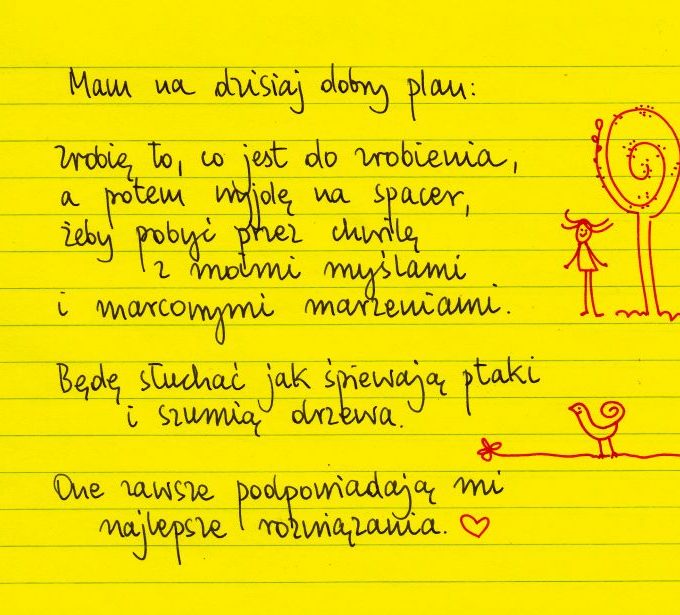 Mam na dzisiaj dobry plan:
zrobię to, co jest do zrobienia,
a potem wyjdę na spacer,
żeby pobyć przez chwilę
z moimi myślami
i marcowymi marzeniami.
Będę słuchać jak śpiewają ptaki
i szumią drzewa.
One zawsze podpowiadają mi
najlepsze rozwiązania.